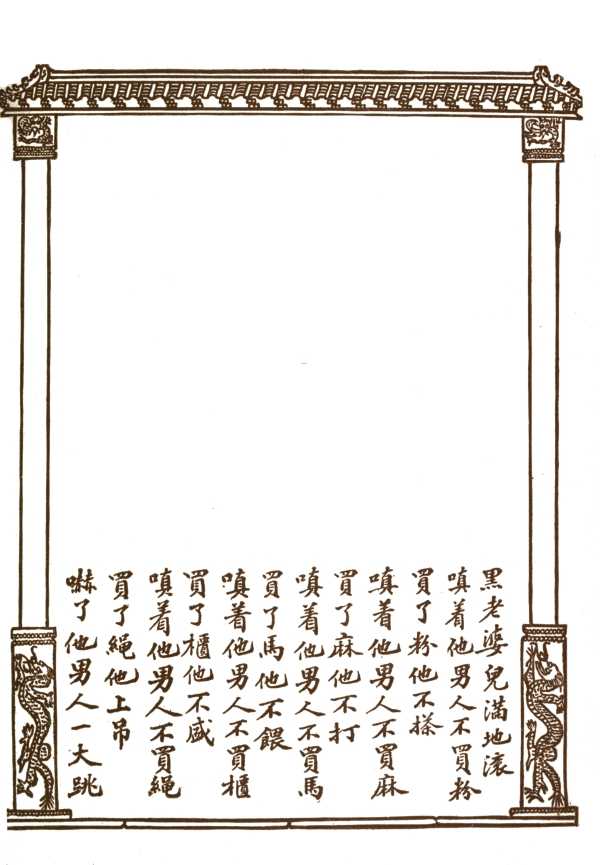 黑老婆兒滿地滾
嗔着他男人不買粉
買了粉他不搽
嗔着他男人不買麻
買了麻他不打
嗔着他男人不買馬
買了馬他不餵
嗔着他男人不買櫃
買了櫃他不盛
嗔着他男人不買繩
買了繩他上吊
嚇了他男人一大跳